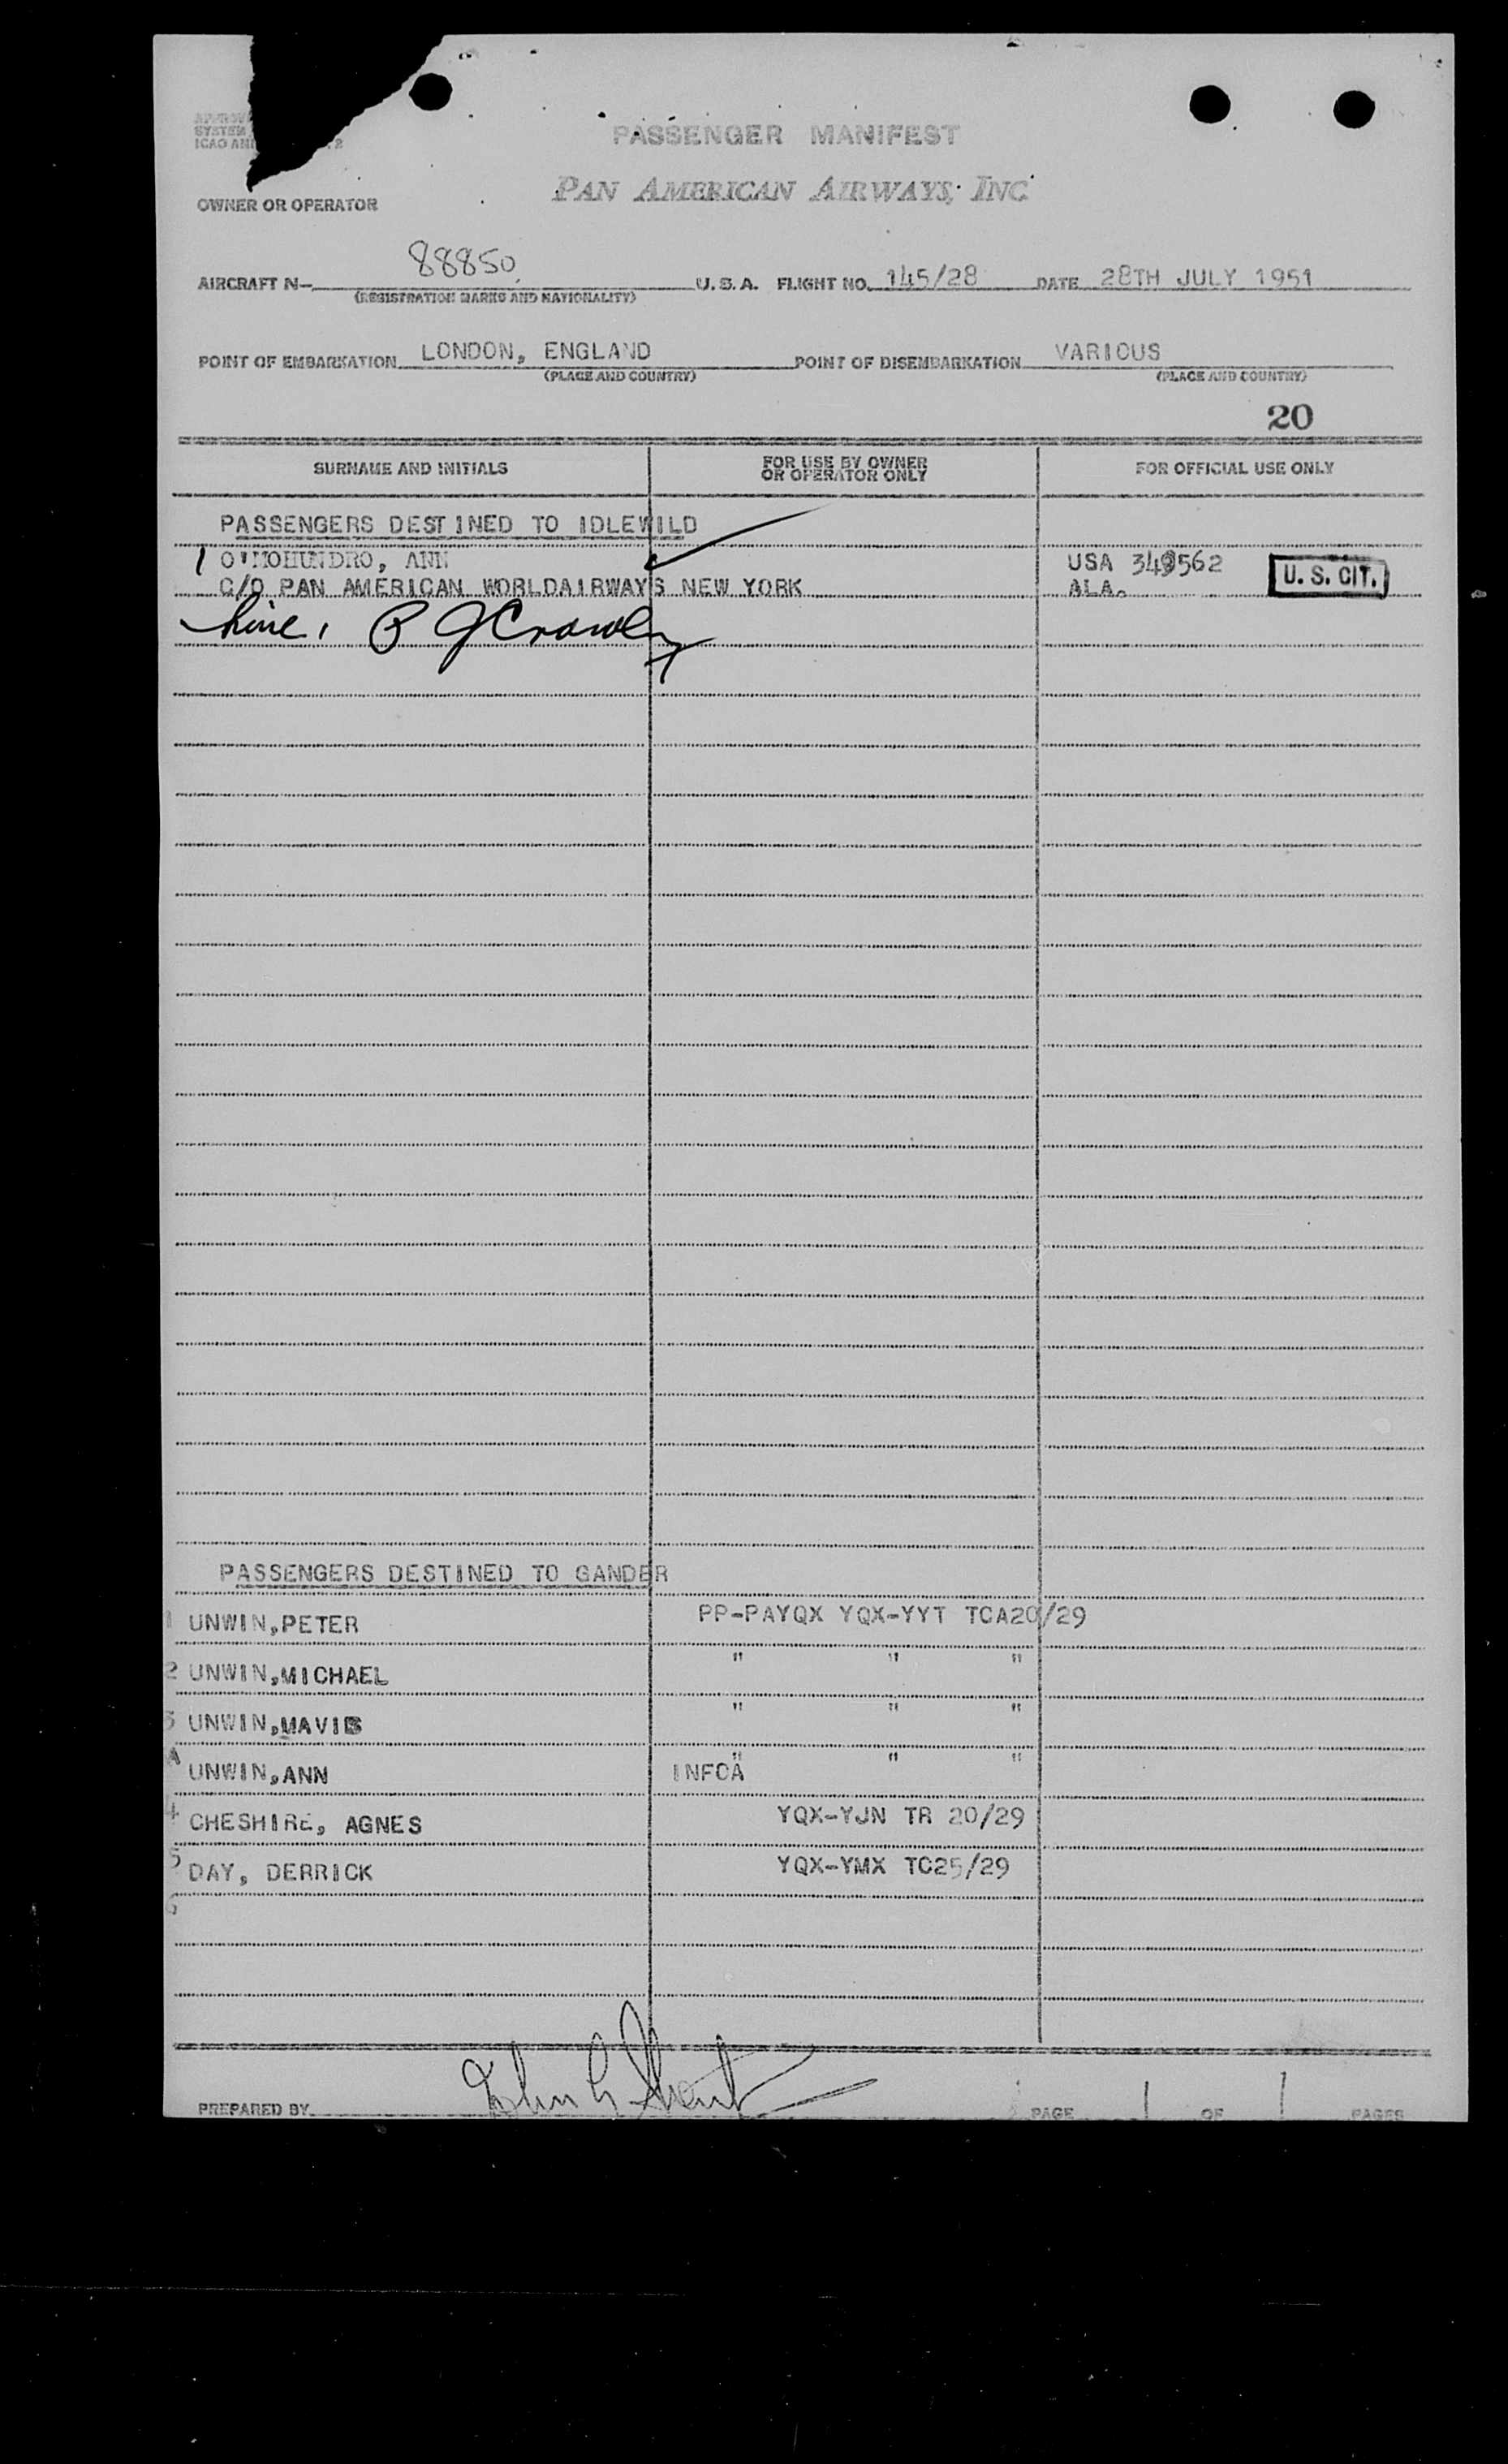 SYSTEM
ICAO
PASSENGER MANIFEST
PAN AMERICAN AIRWAYS, INC.
OWNER OR OPERATOR
AIRCRAFT N- 88850 U.S.A. FLIGHT NO. 145/28 DATE 28TH JULY 1951
(REGISTRATION MARKS AND NATIONALITY)
POINT OF EMBARKATION LONDON, ENGLAND POINT OF DISEMBARKATION VARIOUS
(PLACE AND COUNTRY) (PLACE AND COUNTRY)
20
SURNAME AND INITIALS FOR USE BY OWNER OR OPERATOR ONLY FOR OFFICIAL USE ONLY
PASSENGERS DESTINED TO IDLEWILD
1 O'MOHUNDRO, ANN USA 349562 U. S. CIT.
C/O PAN AMERICAN WORLDAIRWAYS NEW YORK ALA.
PASSENGERS DESTINED TO GANDER
1 UNWIN,PETER PP-PAYQX YQX-YYT TCA20/29
2 UNWIN,MICHAEL " " "
3 UNWIN,MAVIS " " "
A UNWIN,ANN INFOA " " "
4 CHESHIRE, AGNES YQX-YJN TR 20/29
5 DAY, DERRICK YQX-YMX TC25/29
6
PREPARED BY PAGE 1 OF 1 PAGES